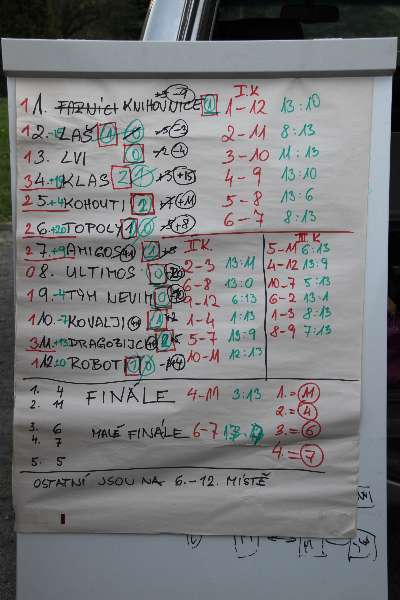 I K
1 1. FAZNÍCI KNIHOVNICE 1 1-12 13:10
1 2. ZAŠI 1 -3 2-11 8:13
1 3. LVI 0 -2 -4 3-10 11:13
3 4. KLAS 2 +3 +15 4-9 13:10
2 5. +4 KOHOUTI 2 +7 +11 5-8 13:6
2 6. +20 TOPOLY 1 -5 +8 6-7 8:13
2 7. +9 AMIGOS 1 +5
II K.
III K
0 8. ULTIMOS 0 2-3 13:11
1 9. -4 TÝM NEVIM 0 6-8 13:0
9-12 6:13
1 10. -7 KOVALJI 1 +2 1-4 1:13
3 11. +13 DRAGOBIJCI 2 5-7 13:9
1 12. ROBOTI 10-11 12:13
5-11 6:13
4-12 13:9
10-7 5:13
6-2 13:1
1-3 8:13
8-9 7:13
1. 4
2. 11
FINÁLE 4-11 3:13
3. 6
4. 7
MALÉ FINÁLE 6-7
5. 5
1. = 11
2. = 4
3. = 6
4. = 7
OSTATNÍ JSOU NA 6.-12. MÍSTĚ